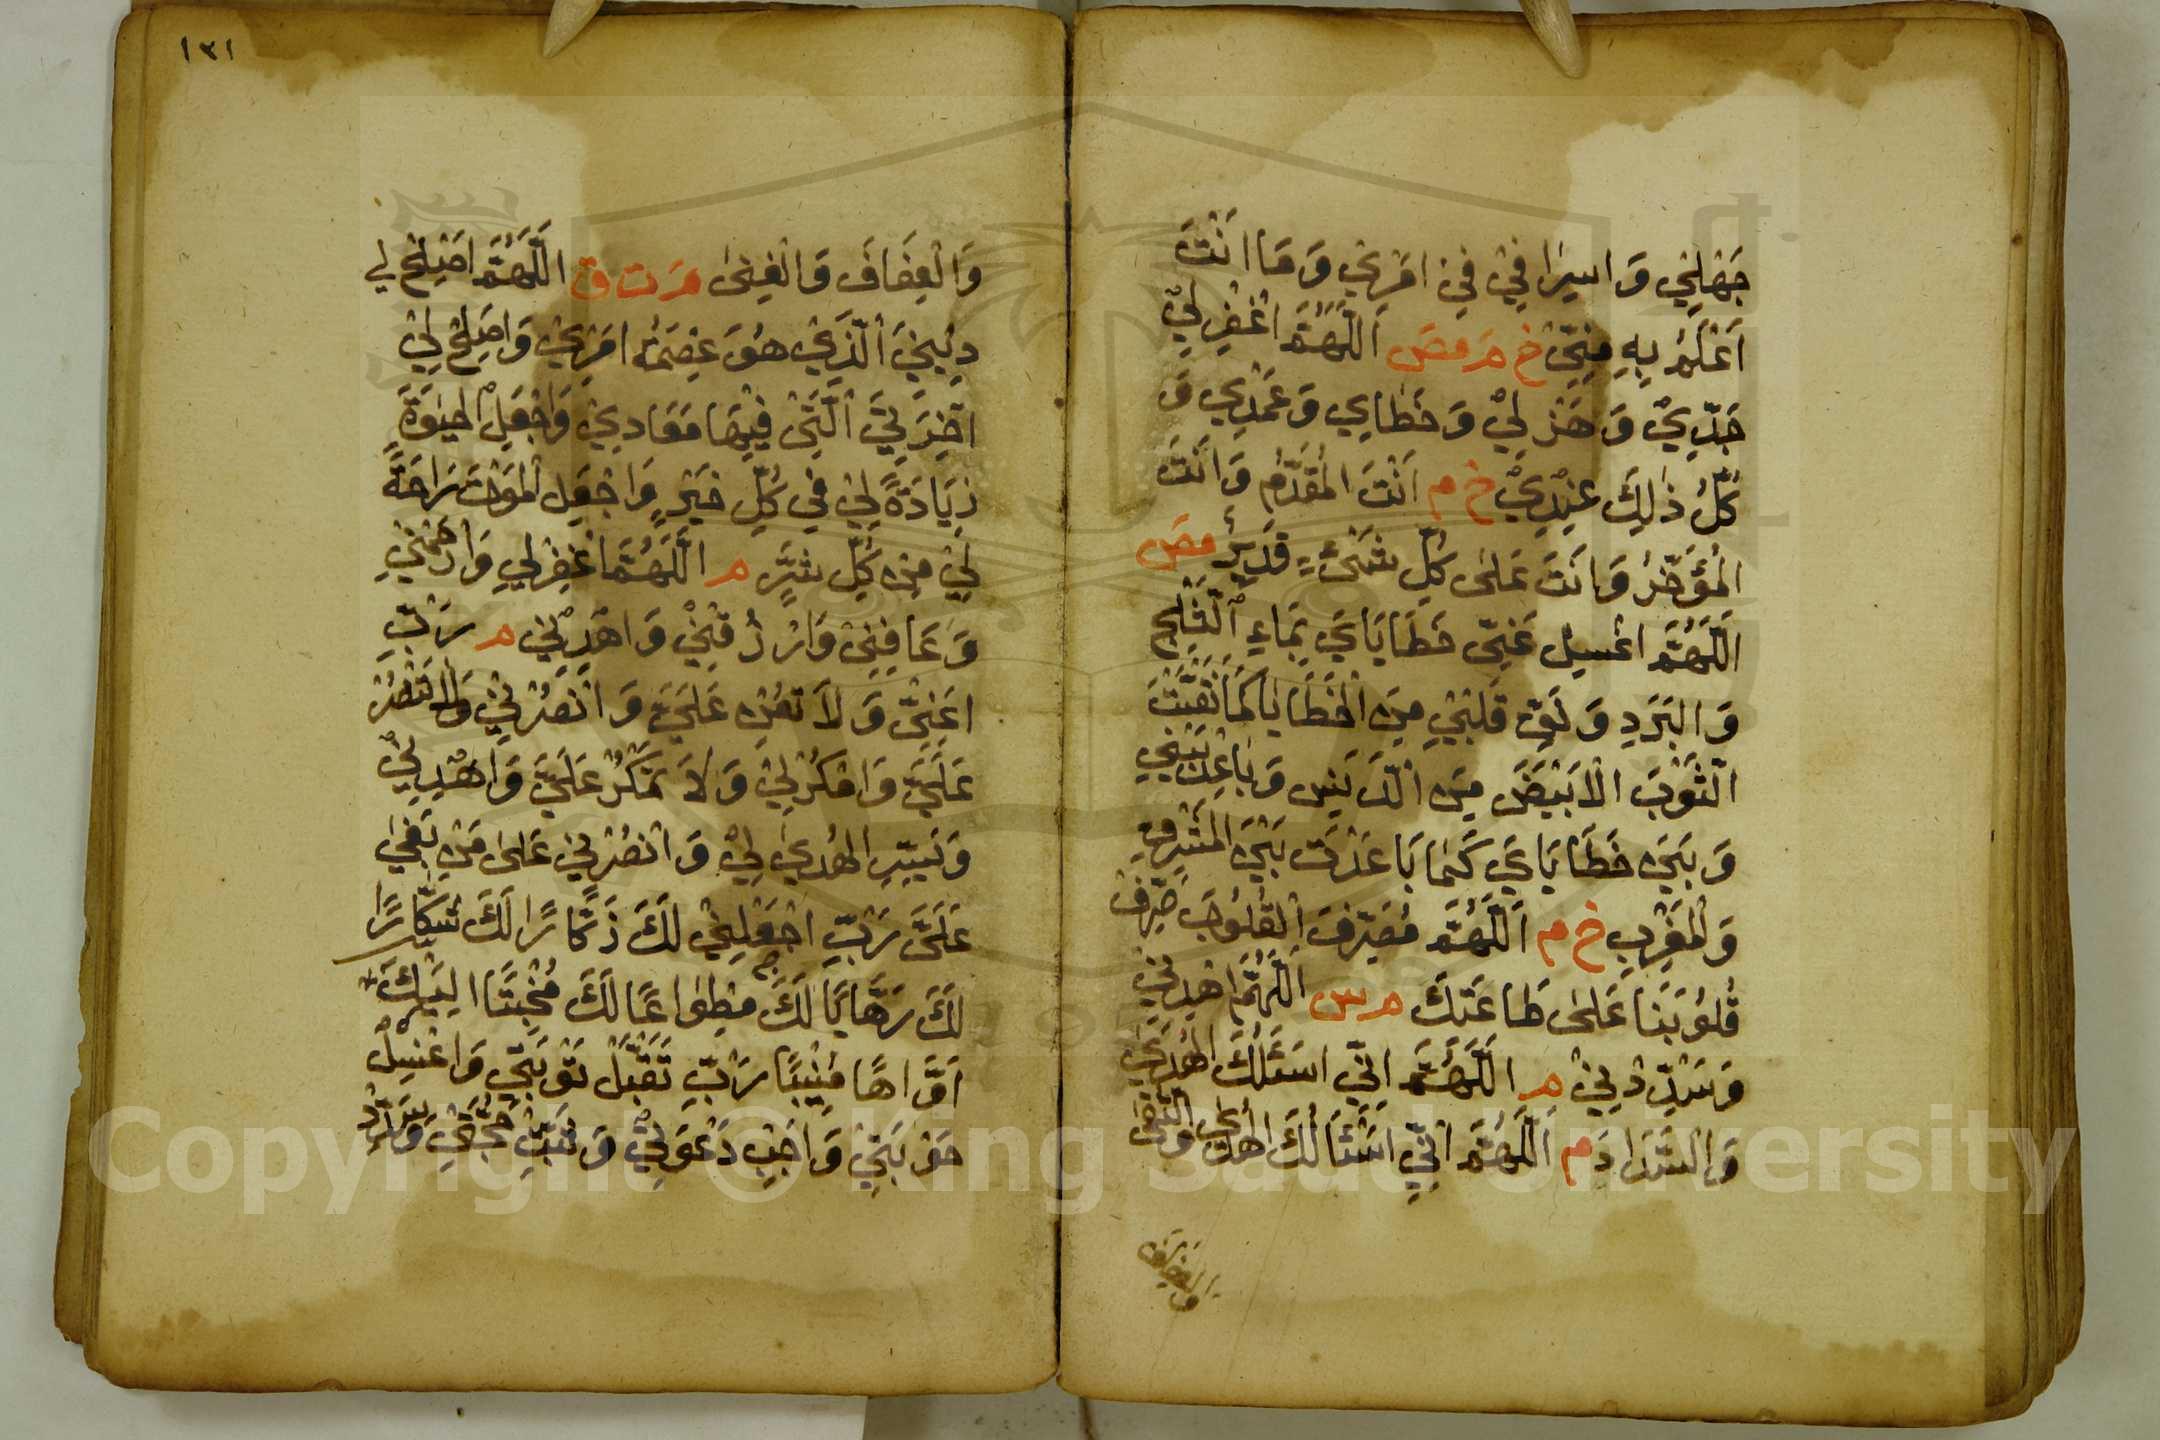 جَهْلِي وَاسِرَافِيْ فِيْ اَمْرِيْ وَمَا اَنْتَ
اَعْلَمُ بِهِ مِنِّيْ خ مَ مصَ اَللّٰهُمَّ اغْفِرْ لِيْ
جَدِّيْ وَهَزْلِيْ وَخَطَايِي وَعَمْدِي وَ
كُلُّ ذٰلِكَ عِنْدِيْ خ م اَنْتَ الْمُقَدِّمُ وَاَنْتَ
الْمُؤَخِّرُ وَاَنْتَ عَلٰى كُلِّ شَيْءٍ قَدِيْرٌ مصَ
اَللّٰهُمَّ اغْسِلْ عَنِّيْ خَطَايَايَ بِمَاءِ الْثَّلْجِ
وَالْبَرَدِ وَنَقِّ قَلْبِيْ مِنَ الْخَطَايَا كَمَا نَقَّيْتَ
الثَّوْبَ الْاَبْيَضَ مِنَ الدَّنَسِ وَبَاعِدْ بَيْنِيْ
وَبَيْنَ خَطَايَايَ كَمَا بَاعَدْتَ بَيْنَ الْمَشْرِقِ
وَالْمَغْرِبِ خ م اَللّٰهُمَّ مُصَرِّفَ الْقُلُوْبَ صَرِّفْ
قُلُوْبَنَا عَلٰى طَاعَتِكَ م س اَللّٰهُمَّ اهْدِنِيْ
وَسَدِّدْنِيْ م اَللّٰهُمَّ اِنِّي اَسْئَلُكَ الْهُدٰي
وَالسَّدَادَ م اَللّٰهُمَّ اِنِّي اَسْئَالُكَ الْهُدٰى وَالتُّقٰى
وَالعَفَافَ
١٣١
وَالْعَفَافَ وَالْغِنٰى مَ ت ق اَللّٰهُمَّ اَصْلِحْ لِي
دِيْنِيَ الَّذِيْ هُوَ عِصْمَةُ اَمْرِيْ وَاَصْلِحْ لِيْ
اٰخِرَتِيَ الَّتِيْ فِيْهَا مَعَادِيْ وَاجْعَلِ الْحَيٰوةَ
زِيَادَةً لِيْ فِي كُلِّ خَيْرٍ وَاجْعَلِ الْمَوْتَ رَاحَةً
لِيْ مِنْ كُلِّ شَرٍّ م اَللّٰهُمَّ اغْفِرْلِيْ وَارْحَمْنِيْ
وَعَافِنِيْ وَارْزُقْنِيْ وَاهْدِنِيْ م رَبِّ
اَعِنِّيْ وَلَا تُعِنْ عَلَيَّ وَانْصُرْنِيْ وَلَا تَنْصُرْ
عَلَيَّ وَامْكُرْلِيْ وَلَا تَمْكُرْ عَلَيَّ وَاهْدِنِيْ
وَيَسِّرِ الْهُدٰي لِيْ وَانْصُرْنِيْ عَلٰى مَنْ بَغٰي
عَلَيَّ رَبِّ اجْعَلْنِيْ لَكَ ذَكَّارًا لَكَ شَكَّارًا
لَكَ رَهَّابًا لَكَ مِطْوَاعًا لَكَ مُخْبِتًا اِلَيْكَ
اَوَّاهًا مُنِيْبًا رَبِّ تَقَبَّلْ تَوْبَتِيْ وَاغْسِلْ
حَوْبَتِيْ وَاَجِبْ دَعْوَتِيْ وَثَبِّتْ حُجَّتِيْ وَسَدِّدْ